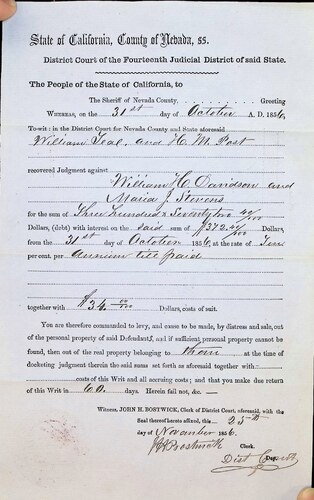 State of California, County of Nevada, ss.
District Court of the Fourteenth Judicial District of said State.
The People of the State of California, to
The Sheriff of Nevada County, Greeting
WHEREAS, on the 31st day of October A. D. 1856,
To-wit: in the District Court for Nevada County and State aforesaid
William Teal, and H. M. Post
recovered Judgment against
William H. Davidson and
Maria J. Stevens
for the sum of Three hundred & Seventy two 40/100
Dollars, (debt) with interest on the said sum of $372.40/100
from the 31st day of October 1856 at the rate of Ten
per cent. per Annum till paid
together with $34.00/100 Dollars, costs of suit.
You are therefore commanded to levy, and cause to be made, by distress and sale, out
of the personal property of said Defendants, and if sufficient personal property cannot be
found, then out of the real property belonging to them at the time of
docketing judgment therein the said sums set forth as aforesaid together with
costs of this Writ and all accruing costs; and that you make due return
of this Writ in 60. Days. Herein fail not, &c. —
Witness, JOHN H. BOSTWICK, Clerk of District Court, aforesaid, with the
Seal thereof hereto affixed, this 25th
day of November 1856.
J H Bostwick Clerk.
Dist Court Dep.